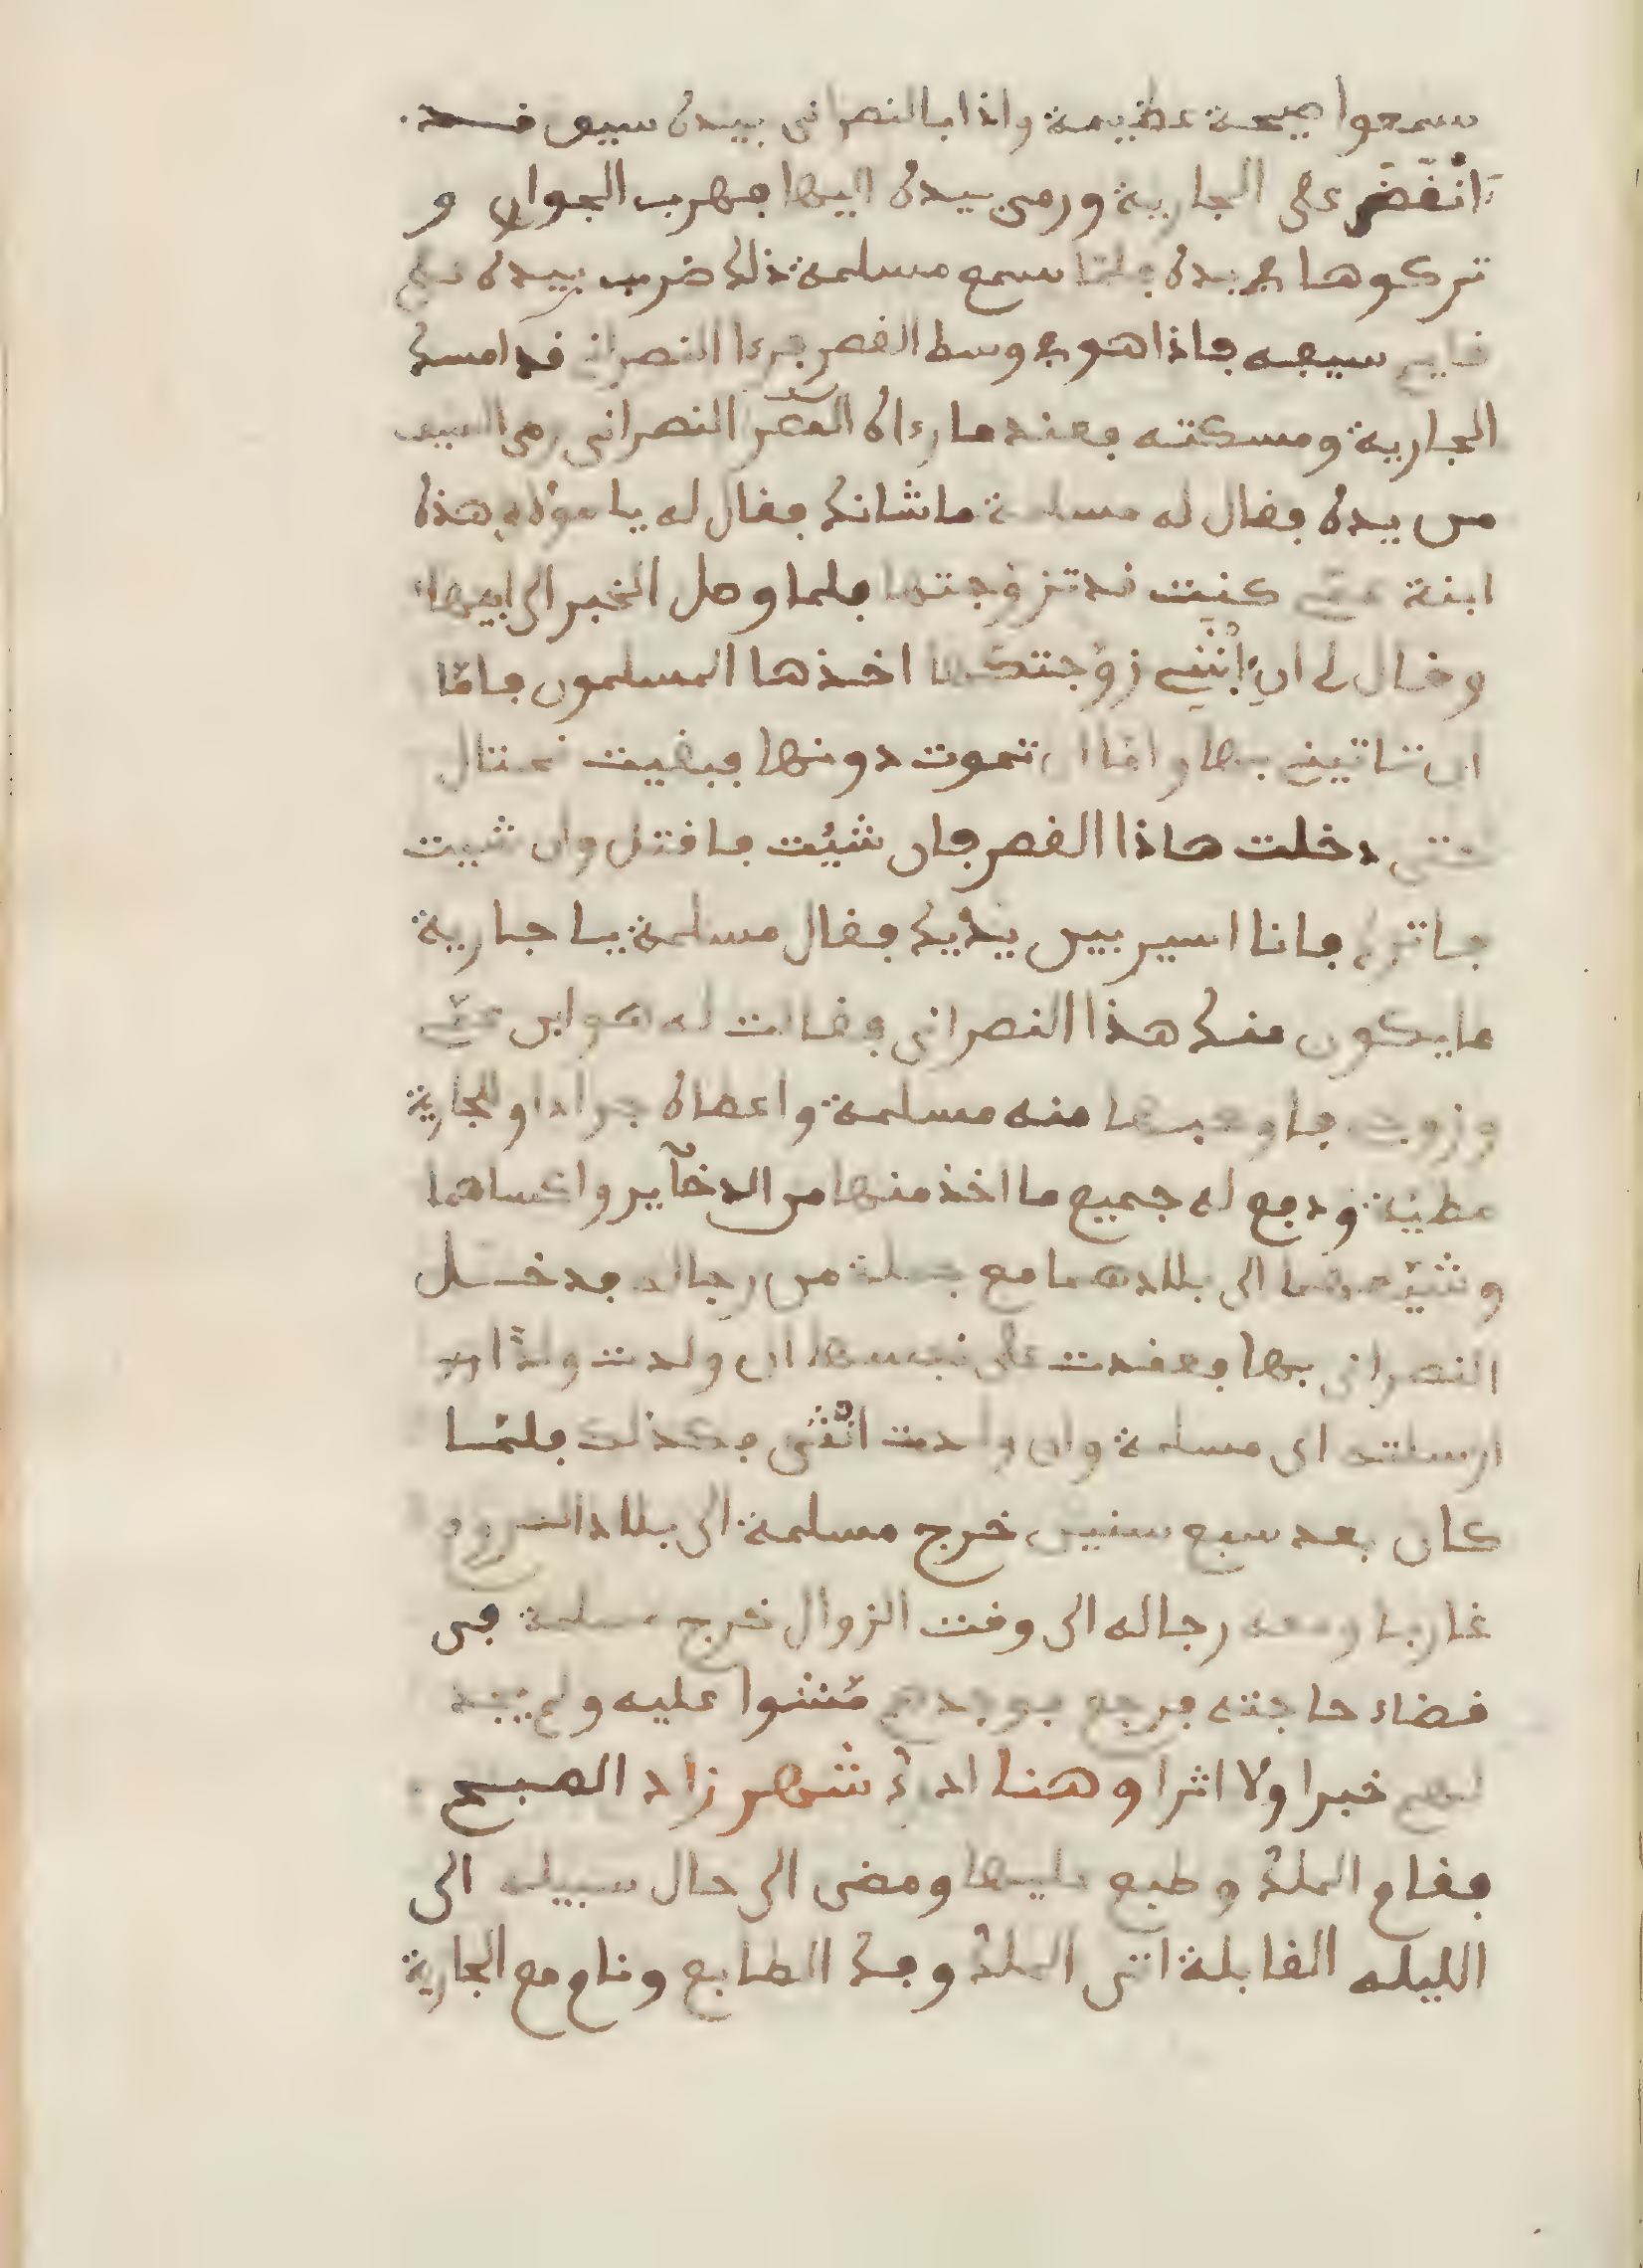 سمعوا صيحة عظيمة واذا بالنصراني بيده سيف قد
انْقَضّ على الجارية ورمى بيده اليها فهرب الجوار و
تركوها في يده فلمّا سمع مسلمة ذلك ضرب بيده على
قايم سيفه فاذا هو في وسط القصر فرءا النصراني قد امسك
الجارية ومسكته فعند ما رءاه النصراني رمى السيف
من يده فقال له مسلمة ما شانك فقال له يا مولاي هذه
ابنة عمّي كنت قد تزوّجتها فلما وصل الخبر الى ابيها
وقال لي ان ابْنَتِي زوّجتكها اخذها المسلمون فامّا
ان تاتيني بها وامّا ان تموت دونها فبقيت نحتال
حتى دخلت هاذا القصر فان شيُت فاقتل وان شيت
فاترك فانا اسير بين يديك فقال مسلمة يا جارية
ما يكون منك هذا النصراني فقالت له هو ابن عمّي
وزوجي فاوهبها منه مسلمة واعطاه والجارية
عطيّة ودفع له جميع ما اخذ منها من الدخآير واكساهما
وشيّعهما الى بلادهما مع جملة من رجاله فدخل
النصراني بها فعقدت على نفسها ان ولدت ولدًا
ارسلته الى مسلمة وان ولدت انْثى فكذلك فلمّا
كان بعد سبع سنين خرج مسلمة الى بلاد الروم
غازيا ومعه رجاله الى وقت الزوال خرج مسلمة في
قضاء حاجته فرجع فوجدهم مّشوا عليه ولم يجد
لهم خبرا ولا اثرا وهنا ادرك شهرزاد الصبح
فقام الملك وطبع عليها ومضى الى حال سبيله الى
الليله القابلة اتى الملك وفك الطابع ونام مع الجارية